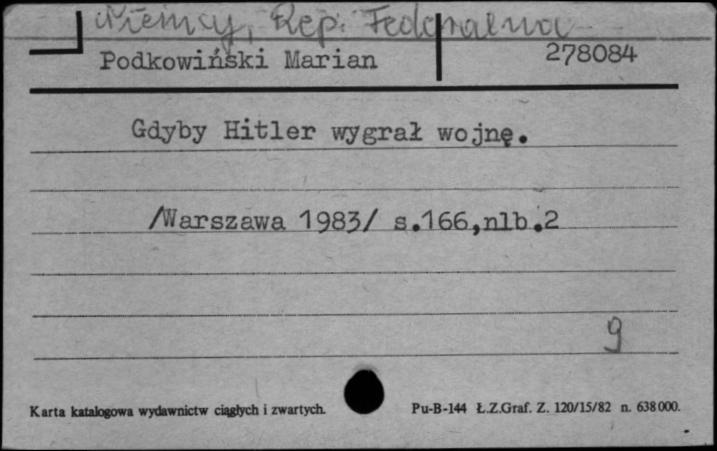 Niemcy, Rep. Federalna
Podkowiński Marian 278084
Gdyby Hitler wygrał wojnę.
/Warszawa 1983/ s.166,nlb.2
9
Karta katalogowa wydawnictw ciągłych i zwartych. Pu-B-144 Ł.Z.Graf. Z. 120/15/82 n. 638000.